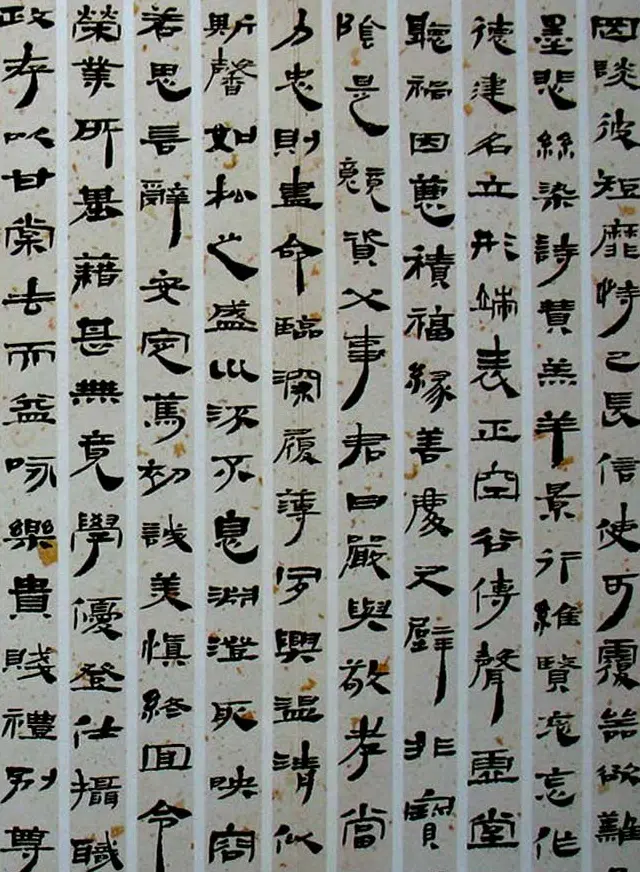 罔談彼短靡恃己長信使可覆器欲難
墨悲絲染詩賛羔羊景行維賢克念作
德建名立形端表正空谷傳聲虛堂
聽禍因惡積福緣善慶尺璧非寶
陰是競資父事君曰嚴與敬孝當
力忠則盡命臨深履薄夙興溫清似
斯馨如松之盛川流不息淵澄取映容
若思言辭安定篤初誠美慎終宜令
榮業所基藉甚無竟學優登仕攝職
政存以甘棠去而益咏樂貴賤禮別尊